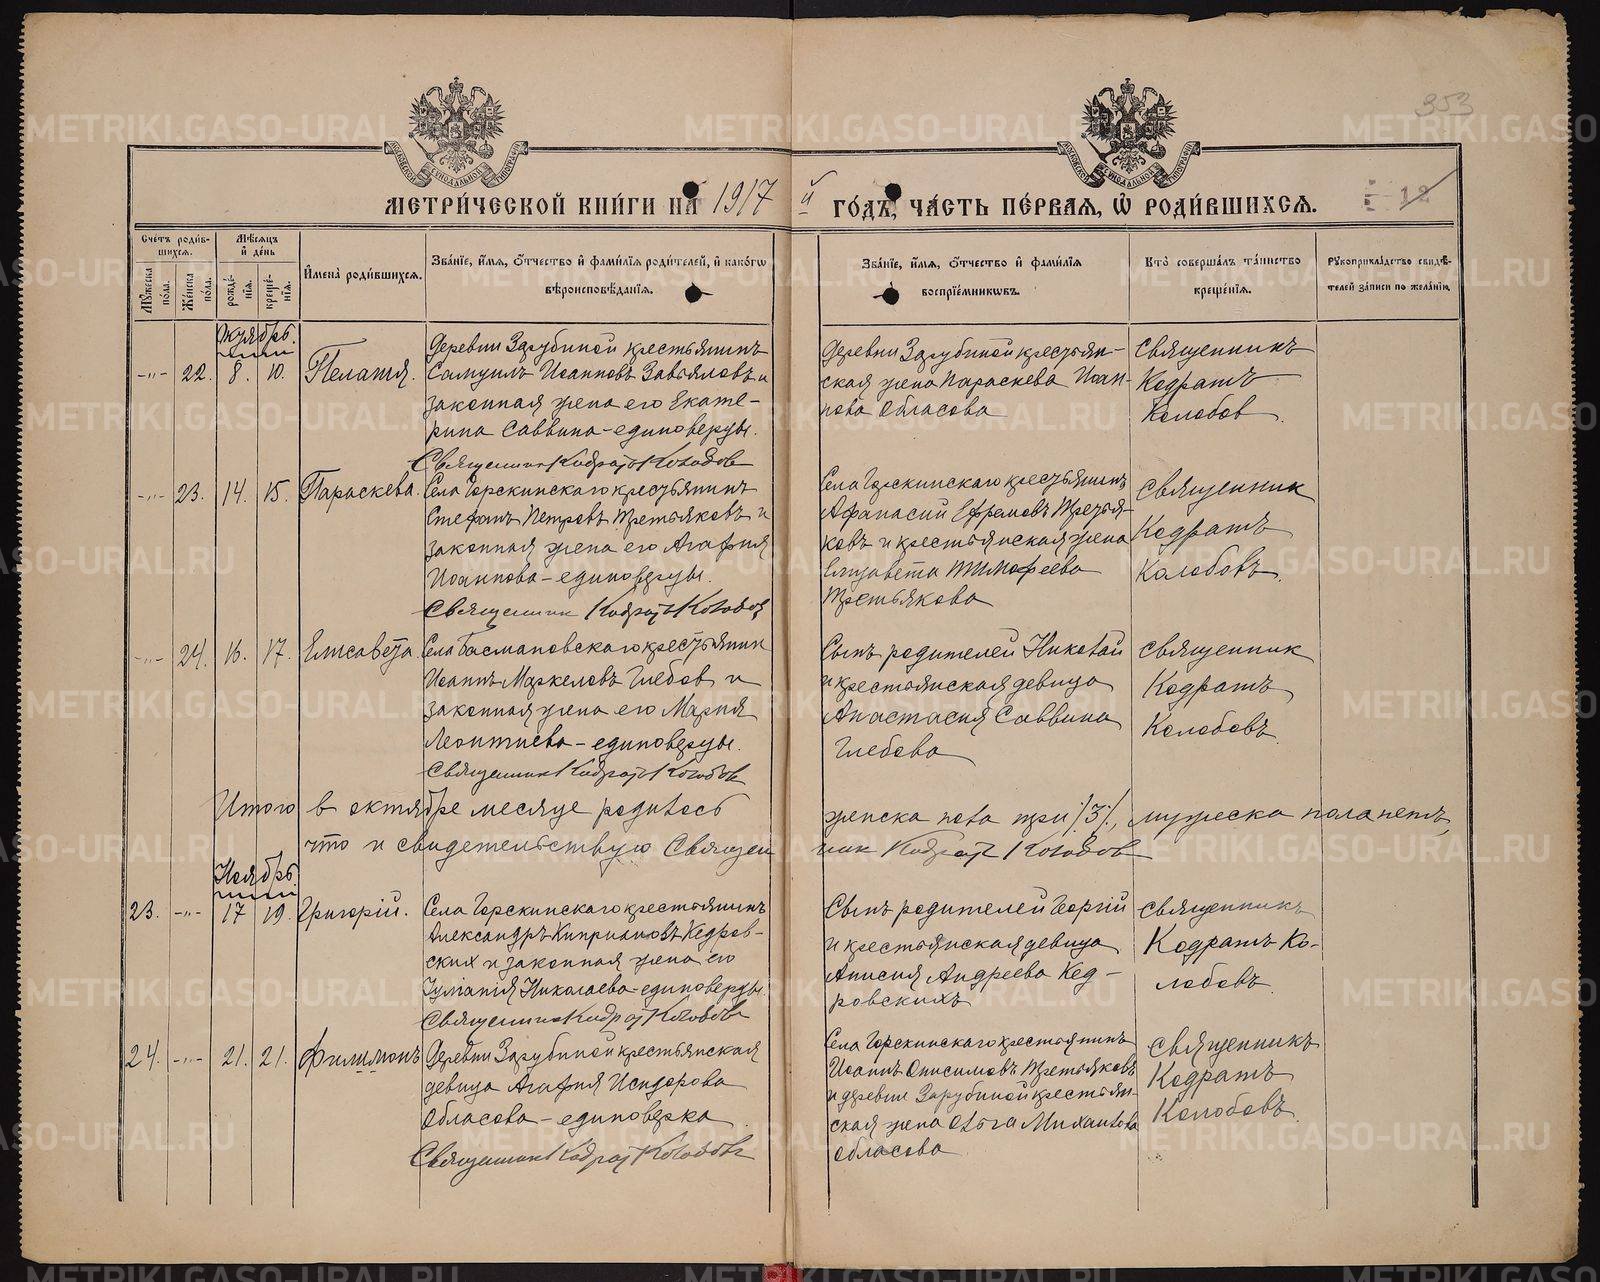 353
МЕТРИ́ЧЕСКОЙ КНИ́ГИ НА 1917 й ГО́ДЪ, ЧА́СТЬ ПЕ́РВАЯ, Ѡ РОДИ́ВШИХСЯ.
12
Сче́тъ роди́вшихся.
Мꙋ́жеска по́ла.
Же́нска по́ла.
Мѣ́сяцъ и҆ де́нь
рожде́нїя.
креще́нїя.
И҆мена̀ роди́вшихся.
Зва́нїе, и҆́мя, ѻ҆́тчество и҆ фами́лїя роди́телей, и҆ како́гѡ
вѣроисповѣ́данїя.
Зва́нїе, и҆́мя, ѻ҆́тчество и҆ фами́лїя
воспрїе́мникѡвъ.
Кто̀ соверша́лъ та́инство
креще́нїя.
Рꙋкоприкла́дство свидѣ́-
телей за́писи по жела́нїю.
Октябрь.
-"- 22. 8. 10. Пелагия.
Деревни Зарубиной крестьянинъ
Самуилъ Иоанновъ Завьяловъ и
законная жена его Екате-
рина Саввина - единоверцы.
Священник Кодрат Колобов
Деревни Зарубиной крестьян-
ская жена Параскева Иоан-
нова Обласова
Священникъ
Кодратъ
Колобов
-"- 23. 14. 15. Параскева.
Села Горскинскаго крестьянинъ
Стефанъ Петровъ Третьяковъ и
законная жена его Агафия
Иоаннова - единоверцы.
Священник Кодрат Колобов
Села Горскинскаго крестьянинъ
Афанасий Ефремовъ Третья-
ковъ и крестьянская жена
Елизавета Тимофеева
Третьякова
Священник
Кодратъ
Колобовъ.
-"- 24. 16. 17. Елисавета.
Села Басмановскаго крестьянин
Иоаннъ Маркеловъ Глебов и
законная жена его Мария
Леонтиева - единоверцы.
Священник Кодрат Колобов
Сынъ родителей Николай
и крестьянская девица
Анастасия Саввина
Глебова
Священник
Кодратъ
Колобовъ.
Итого в октябре месяце родилось женска пола три /3/, мужеска пола нетъ,
что и свидетельствую Священник Кодрат Колобов
Ноябрь
23. -"- 17 19. Григорий.
Села Горскинскаго крестьянинъ
Александръ Киприановъ Кедров-
ских и законная жена его
Николаева - единоверцы.
Священник Кодрат Колобовъ
Сынъ родителей Георгий
и крестьянская девица
Анисия Андреева Кед-
ровскихъ
Священникъ
Кодратъ Ко-
лобовъ.
24. -"- 21. 21. Филимонъ
Деревни Зарубиной крестьянская
девица Агафия Исидорова
Обласова - единоверка.
Священник Кодрат Колобовъ
Села Горскинскаго крестьянинъ
Иоаннъ Онисимовъ Третьяковъ
и деревни Зарубиной крестьян-
ская жена Ольга Михайлова
Обласова
Священникъ
Кодратъ
Колобовъ.
METRIKI.GASO-URAL.RU